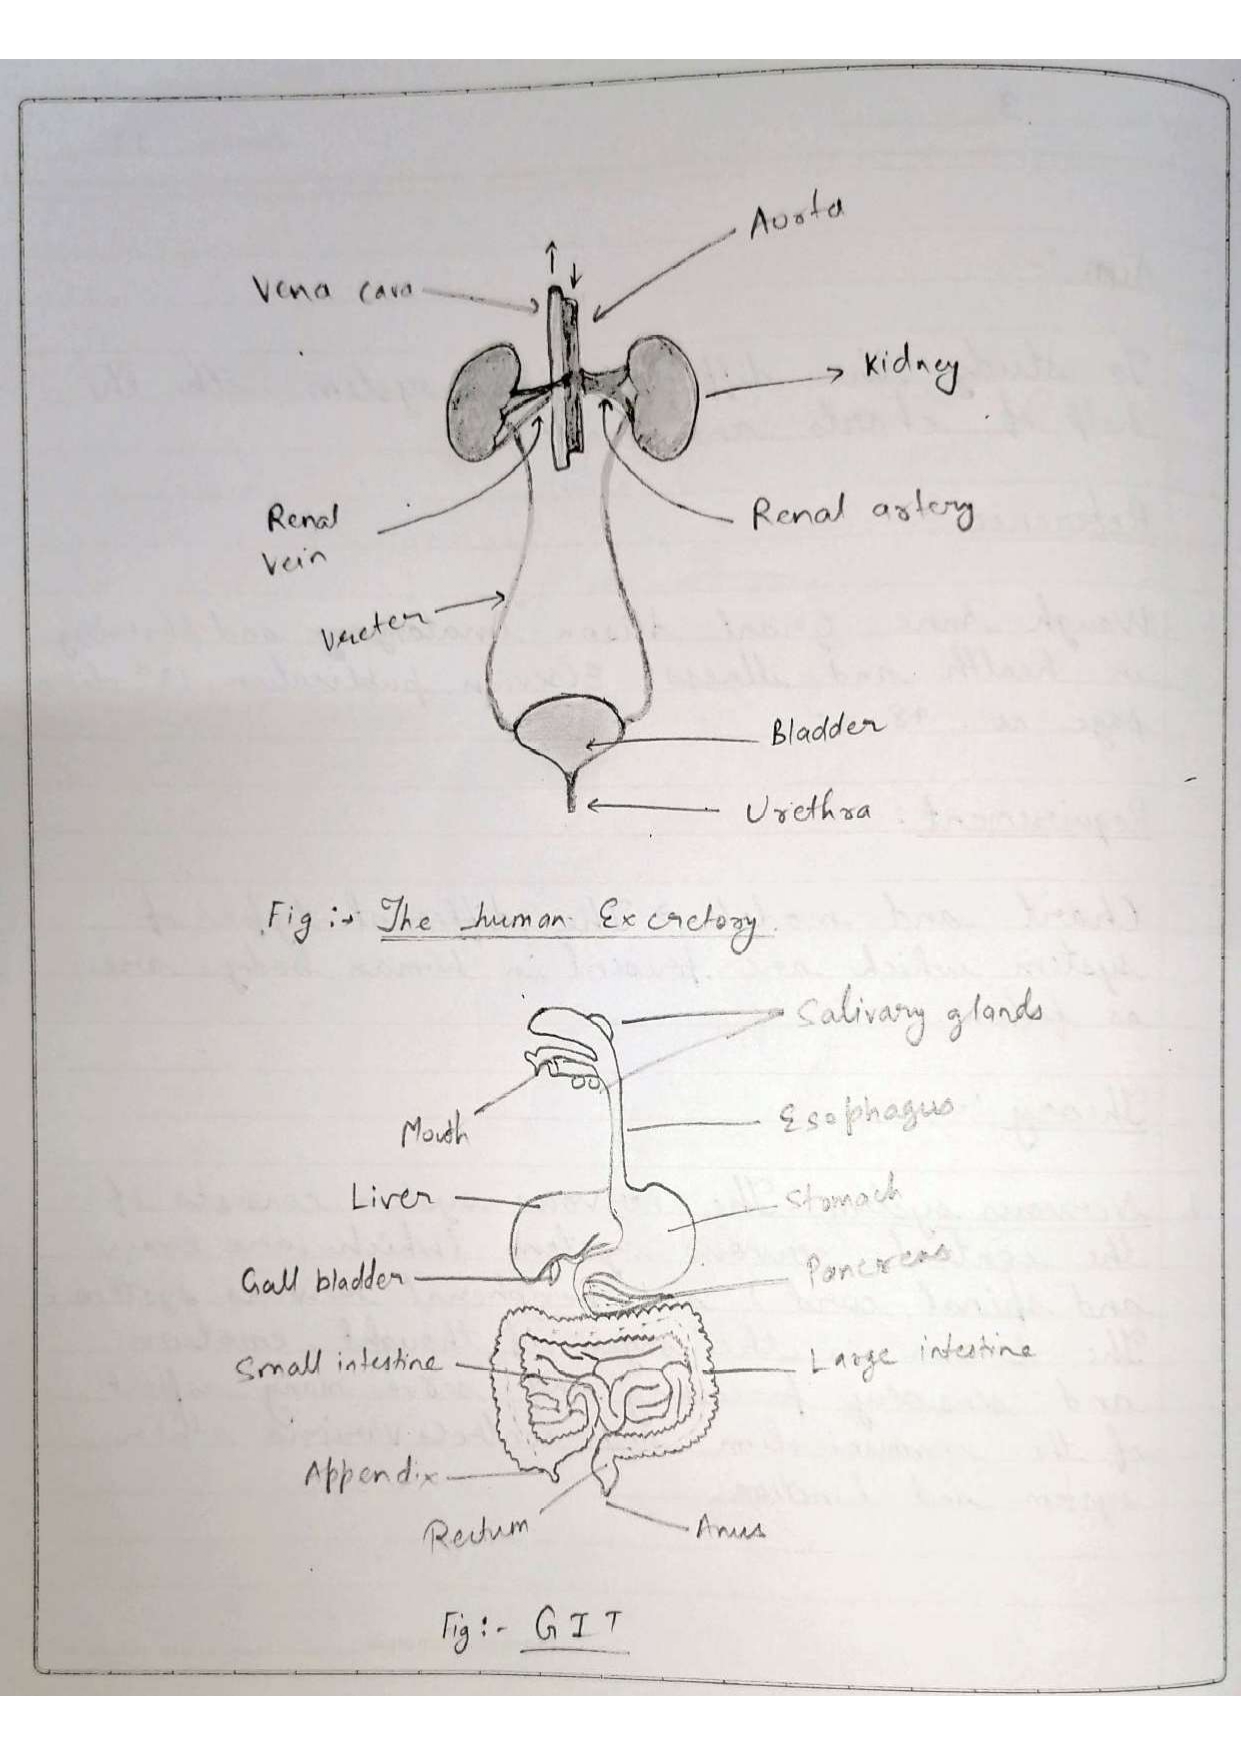 Aorta
Vena cava
Kidney
Renal
vein
Renal artery
Ureter
Bladder
Urethra
Fig :→ The human Excretory.
Salivary glands
Mouth
Esophagus
Liver
Stomach
Gall bladder
Pancreas
Small intestine
Large intestine
Appendix
Rectum
Anus
Fig :- GIT